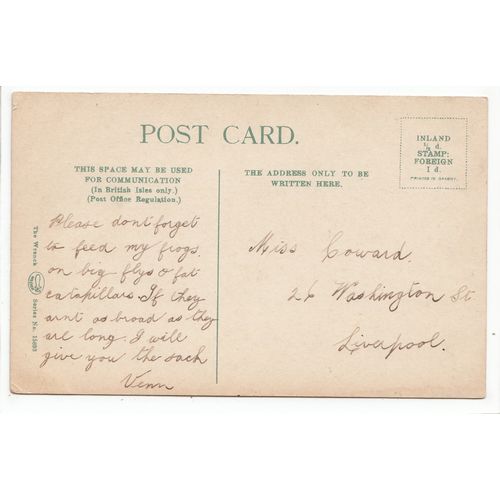 POST CARD.
THIS SPACE MAY BE USED
FOR COMMUNICATION
(In British Isles only.)
(Post Office Regulation.)
THE ADDRESS ONLY TO BE
WRITTEN HERE.
INLAND
½ d.
STAMP:
FOREIGN
1 d.
PRINTED IN SAXONY.
Please dont forget
to feed my frogs.
on big flys & fat
catapillars. If they
arnt as broad as they
are long. I will
give you the sack
Venn
Miss Coward.
26 Washington St.
Liverpool.
The Wrench
Series No. 15093